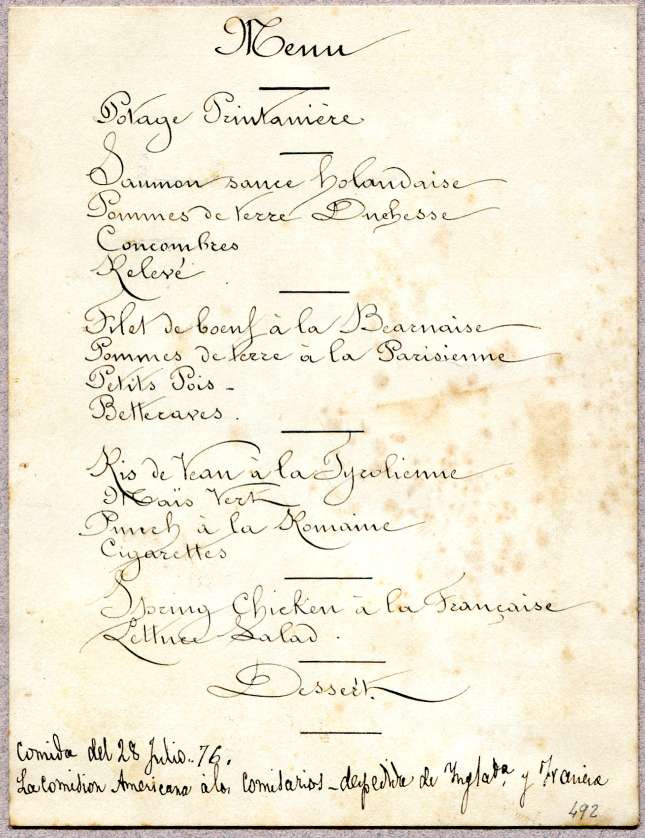 Menu
Potage Printanière
Saumon sauce holandaise
Pommes de terre Duchesse
Concombres
Relevé
Filet de boeuf à la Bearnaise
Pommes de terre à la Parisienne
Petits Pois -
Betteraves.
Ris de Veau à la Tyrolienne
Maïs Vert
Punch à la Romaine
Cigarettes
Spring Chicken à la Française
Lettuce Salad.
Dessert.
Comida del 28 Julio.. 76.
La Comision Americana à los Comisarios - despedida de Inglada. y Francia
492